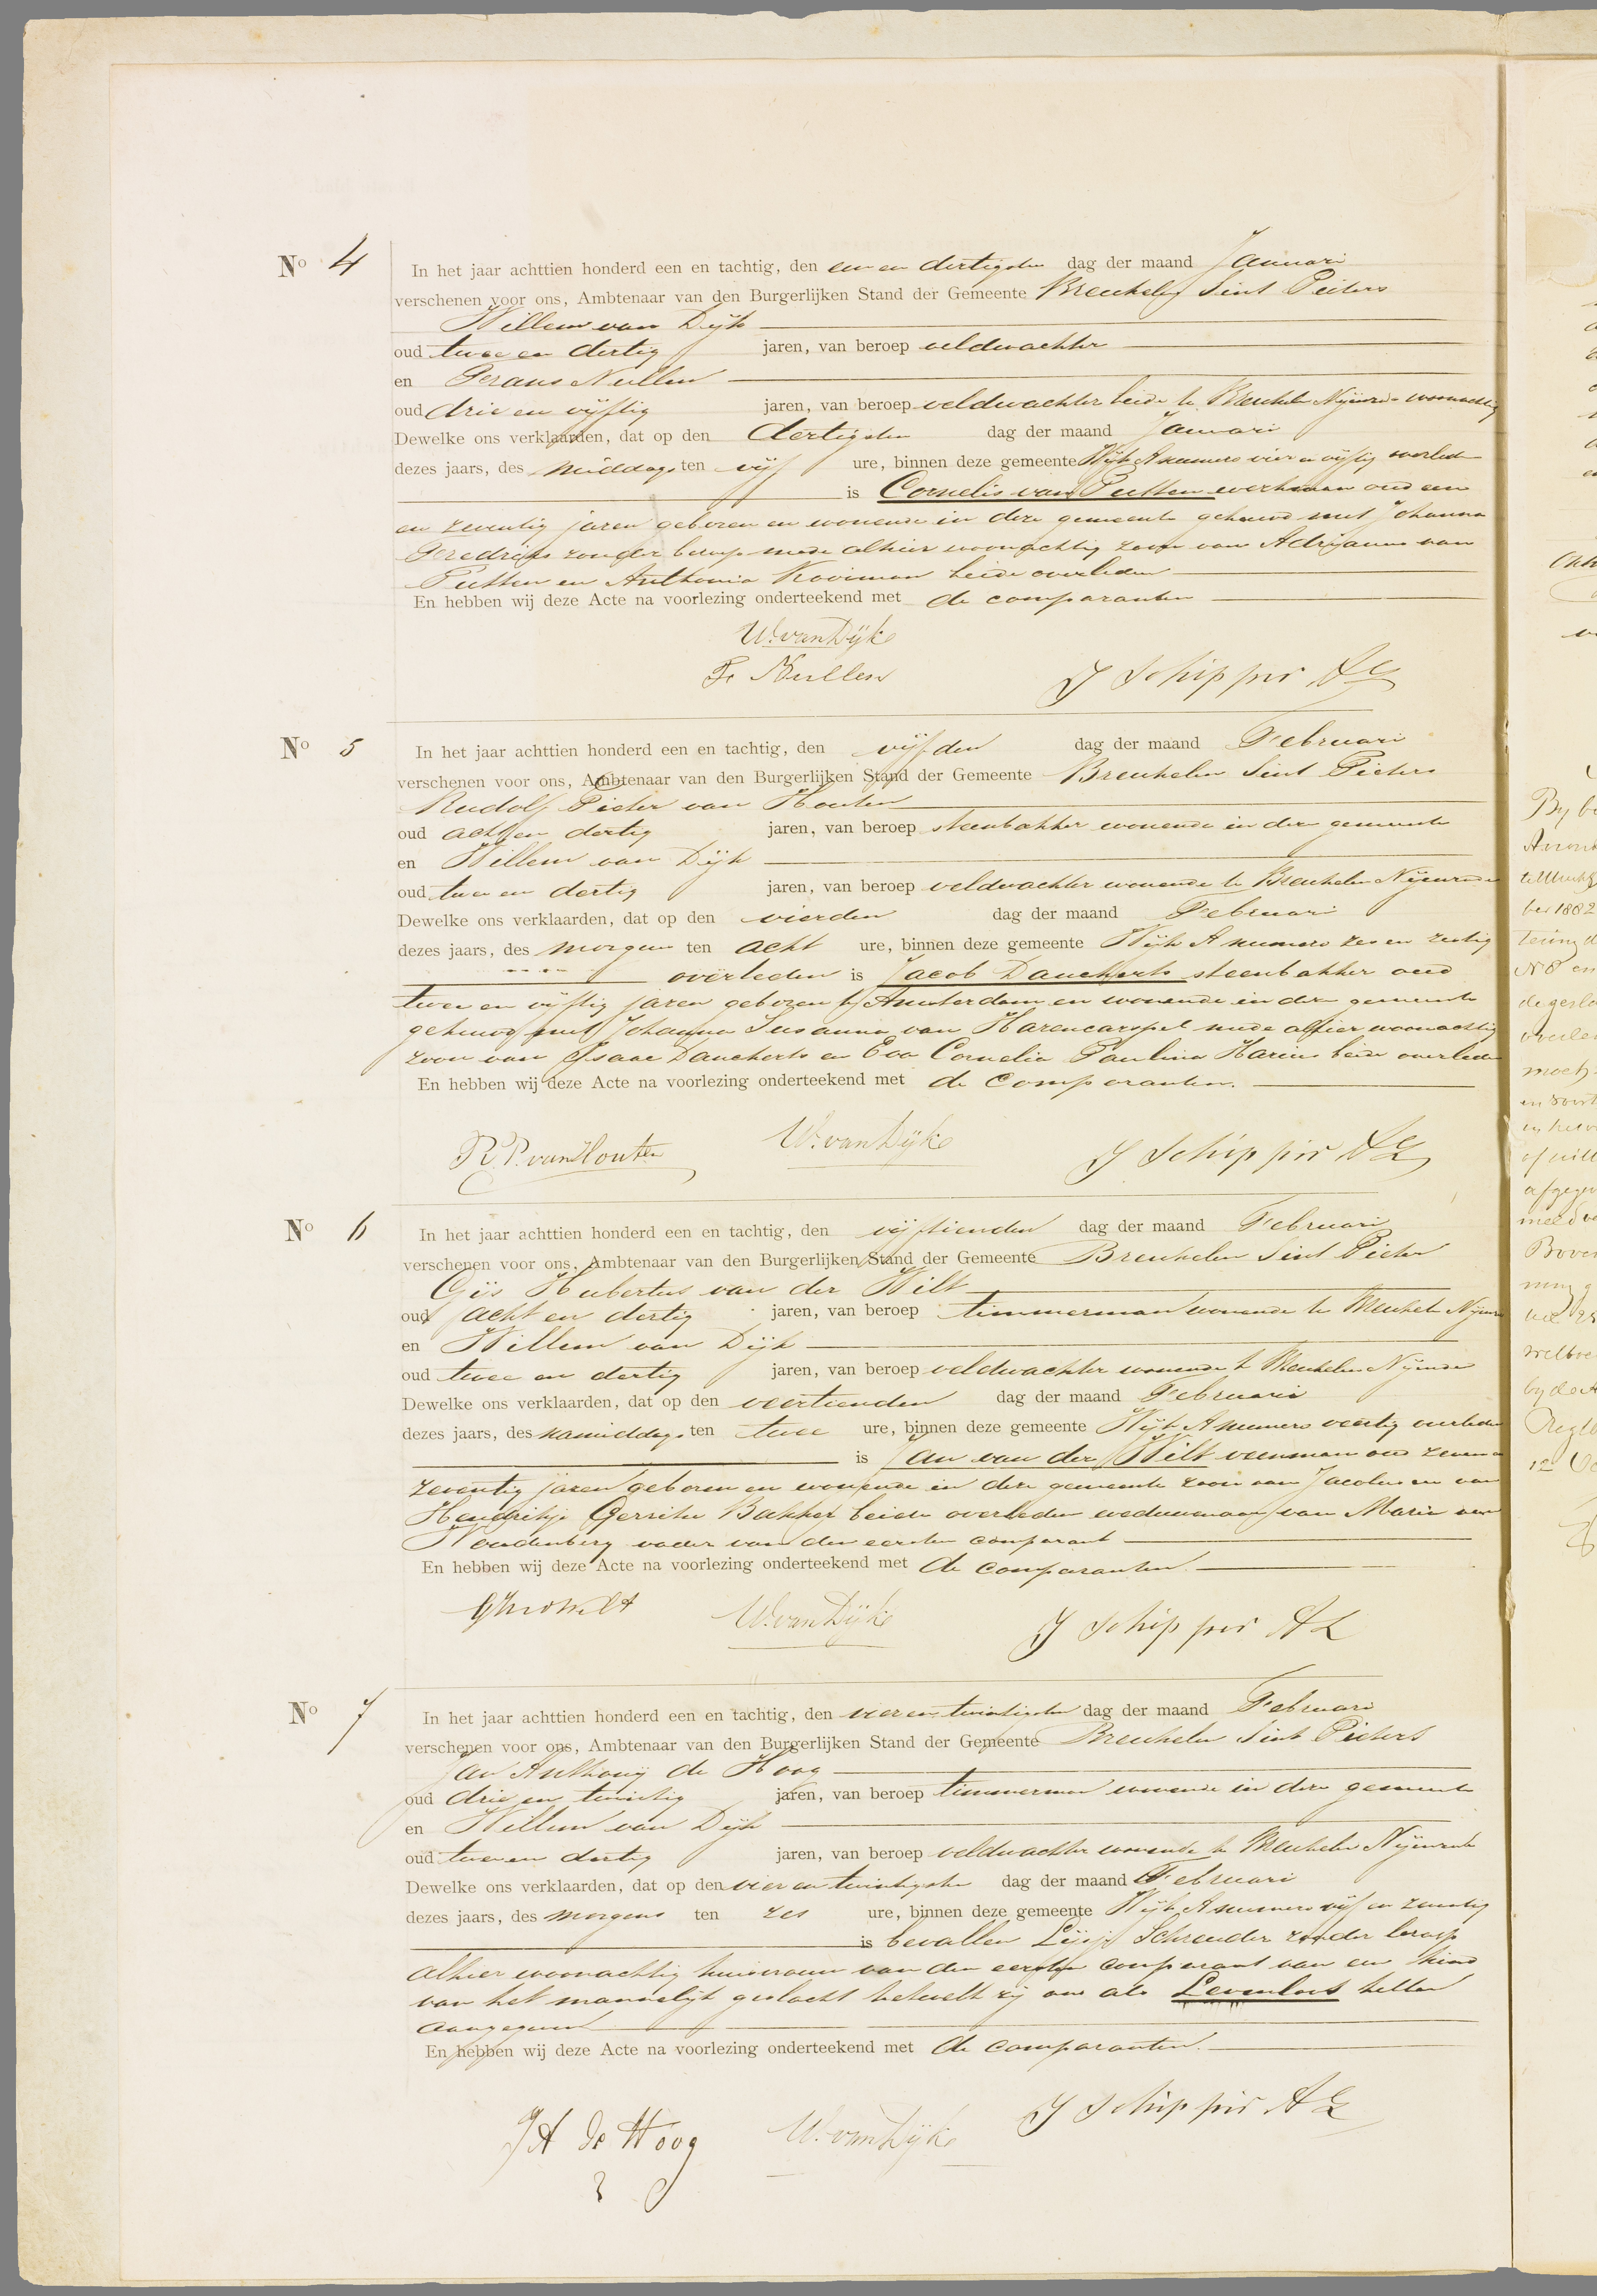 No 4
In het jaar achttien honderd een en tachtig, den een en dertigsten dag der maand Januari
verschenen voor ons, Ambtenaar van den Burgerlijken Stand der Gemeente Breukelen Sint Pieters
Willem van Dijk
oud twee en dertig jaren, van beroep veldwachter
en Frans Nullen
oud drie en vijftig jaren, van beroep veldwachter beide te Breukelen Nijenrode woonachtig
Dewelke ons verklaarden, dat op den dertigsten dag der maand Januari
dezes jaars, des middags ten vijf ure, binnen deze gemeente Wijk A numero vier en vijftig overleden
is Cornelis van Putten werkman oud een
en zeventig jaren geboren en wonende in deze gemeente gehuwd met Johanna
Fredriks zonder beroep mede alhier woonachtig zoon van Adrijanus van
Putten en Anthonia Kooiman beide overleden
En hebben wij deze Acte na voorlezing onderteekend met de comparanten
W. van Dijk
F. Nullen
J Schipper
No 5
In het jaar achttien honderd een en tachtig, den vijfden dag der maand Februari
verschenen voor ons, Ambtenaar van den Burgerlijken Stand der Gemeente Breukelen Sint Pieters
Rudolf Pieter van Houten
oud acht en dertig jaren, van beroep steenbakker wonende in deze gemeente
en Willem van Dijk
oud twee en dertig jaren, van beroep veldwachter wonende te Breukelen Nijenrode
Dewelke ons verklaarden, dat op den vierden dag der maand Februari
dezes jaars, des morgens ten acht ure, binnen deze gemeente Wijk A numero zes en zestig
overleden is Jacob Danckerts steenbakker oud
twee en vijftig jaren geboren te Amsterdam en wonende in deze gemeente
gehuwd met Johanna Susanna van Harencarspel mede alhier woonachtig
zoon van Isaac Danckerts en Eva Cornelia Paulina Harius beide overleden
En hebben wij deze Acte na voorlezing onderteekend met de comparanten.
R. P. van Houten W. van Dijk J Schipper
No 6
In het jaar achttien honderd een en tachtig, den vijftienden dag der maand Februari
verschenen voor ons, Ambtenaar van den Burgerlijken Stand der Gemeente Breukelen Sint Pieter
Gijs Hubertus van der Wilt
oud acht en dertig jaren, van beroep timmerman wonende te Breukelen Nijenrode
en Willem van Dijk
oud twee en dertig jaren, van beroep veldwachter wonende te Breukelen Nijenrode
Dewelke ons verklaarden, dat op den veertienden dag der maand Februari
dezes jaars, des namiddags ten twee ure, binnen deze gemeente Wijk A numero veertig overleden
is Jan van der Wilt veenman oud zeven en
zeventig jaren geboren en wonende in deze gemeente zoon van Jacobus en van
Hendrikje Gerritse Bakker beide overleden weduwenaar van Maria van
Woudenberg vader van den eersten comparant
En hebben wij deze Acte na voorlezing onderteekend met de comparanten.
W. van Dijk J Schipper
No 7
In het jaar achttien honderd een en tachtig, den vier en twintigsten dag der maand Februari
verschenen voor ons, Ambtenaar van den Burgerlijken Stand der Gemeente Breukelen Sint Pieters
Jan Anthonij de Hoog
oud drie en twintig jaren, van beroep timmerman wonende in deze gemeente
en Willem van Dijk
oud twee en dertig jaren, van beroep veldwachter wonende te Breukelen Nijenrode
Dewelke ons verklaarden, dat op den vier en twintigsten dag der maand Februari
dezes jaars, des morgens ten zes ure, binnen deze gemeente Wijk A numero vijf en zeventig
is bevallen Lijsje Schreuder zonder beroep
alhier woonachtig huisvrouw van den eersten comparant van een kind
van het mannelijk geslacht hetwelk zij ons als Levenloos hebben
aangegeven
En hebben wij deze Acte na voorlezing onderteekend met de comparanten.
J A de Hoog W. van Dijk J Schipper